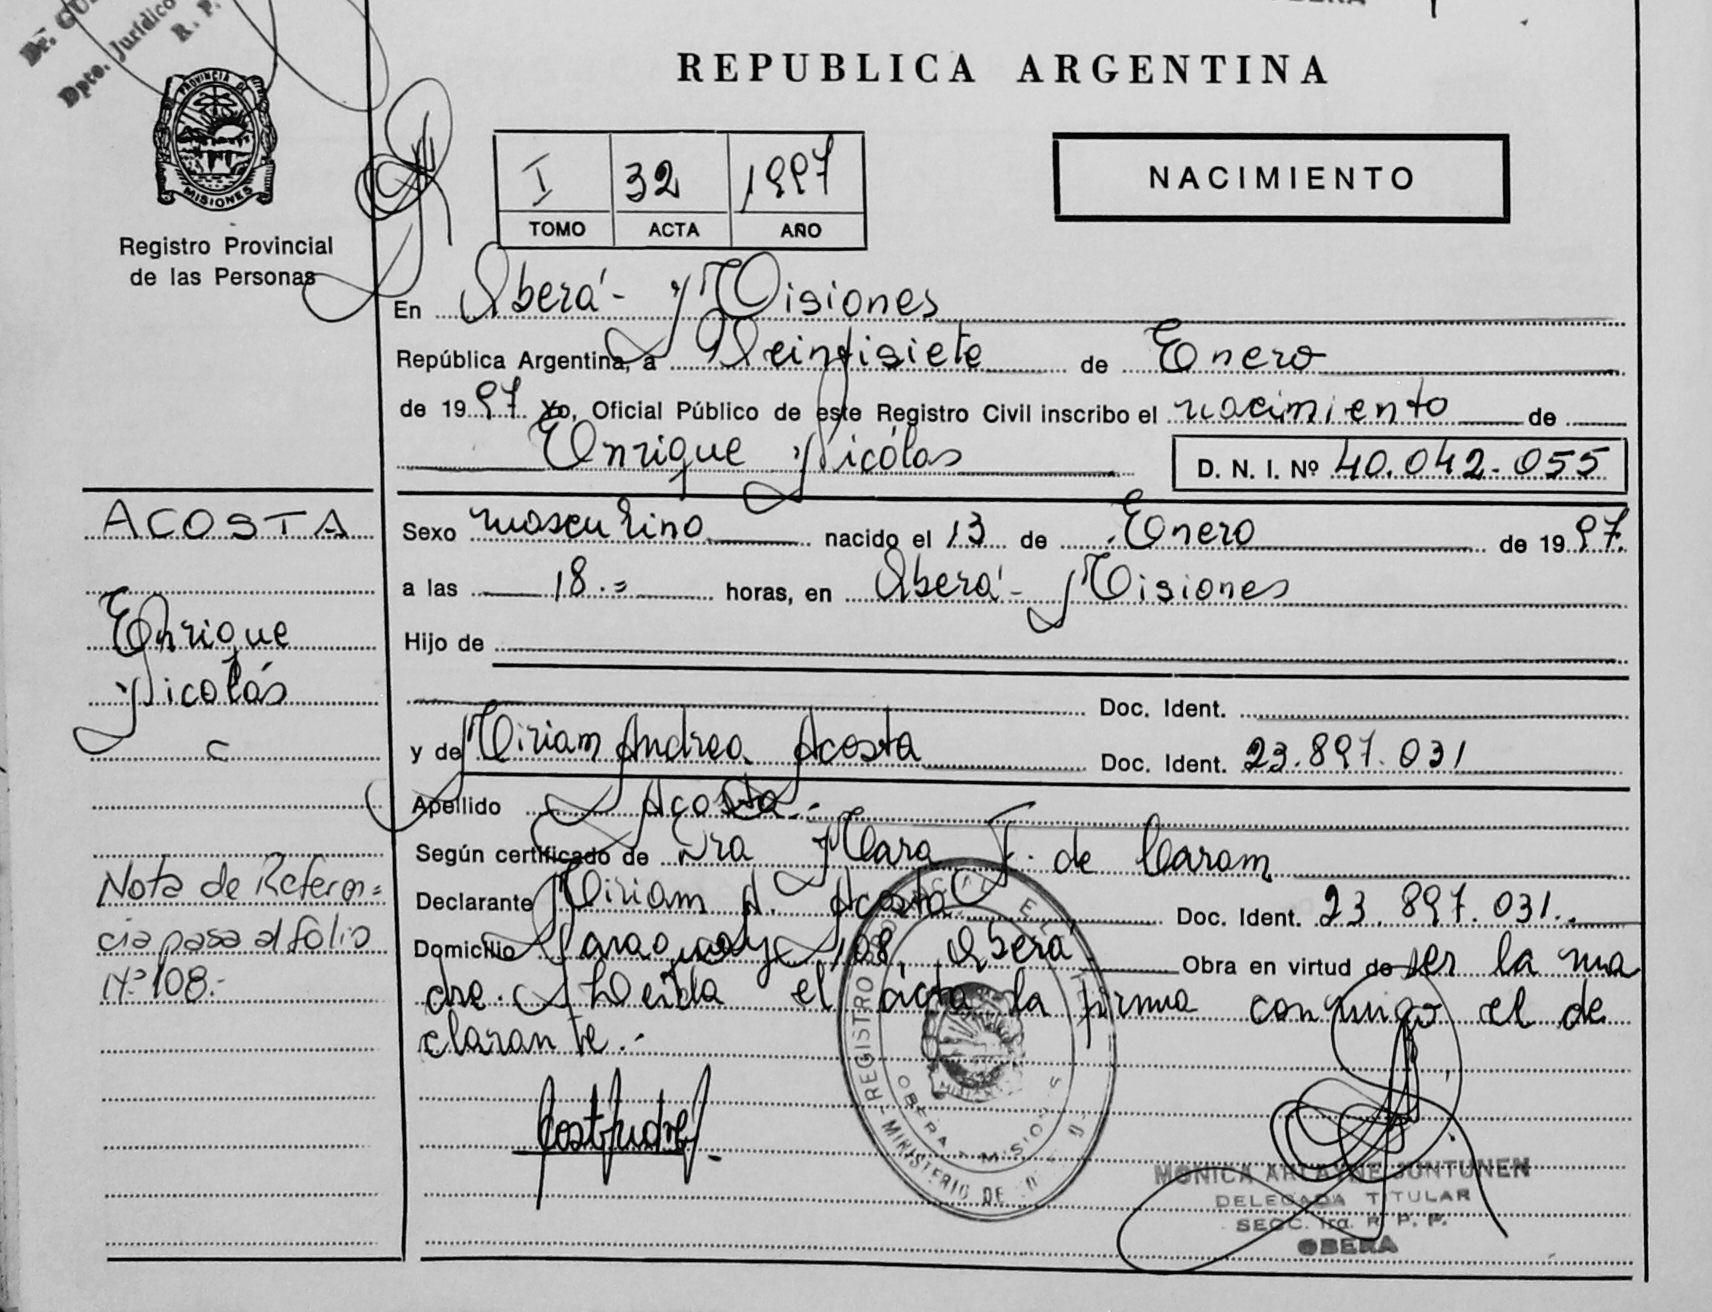 Dpto. Jurídico
R. P.
OBERA
REPUBLICA ARGENTINA
PROVINCIA DE
MISIONES
Registro Provincial
de las Personas
I 32 1997
TOMO ACTA AÑO
NACIMIENTO
En Oberá - Misiones
República Argentina, a Veintisiete de Enero
de 1997 Yo, Oficial Público de este Registro Civil inscribo el nacimiento de
Enrique Nicolás D. N. I. Nº 40.042.055
Sexo masculino nacido el 13 de Enero de 1997.
a las 18.= horas, en Oberá - Misiones
Hijo de
Doc. Ident.
y de Miriam Andrea Acosta Doc. Ident. 23.897.031
Apellido Acosta.-
Según certificado de Dra Mara F. de Caram
Declarante Miriam A. Acosta Doc. Ident. 23.897.031.
Domicilio Paraguay 108, Oberá Obra en virtud de ser la ma
dre. Leída el acta la firma conmigo el de
clarante.-
ACOSTA
Enrique
Nicolás
Nota de Referen=
cia pasa al folio
Nº 108.-
REGISTRO PROVINCIAL DE
OBERA - MISIONES
MINISTERIO DE
MONICA ARLAYNE JUNTUNEN
DELEGADA TITULAR
SECC. 1ra. R. P. P.
OBERA